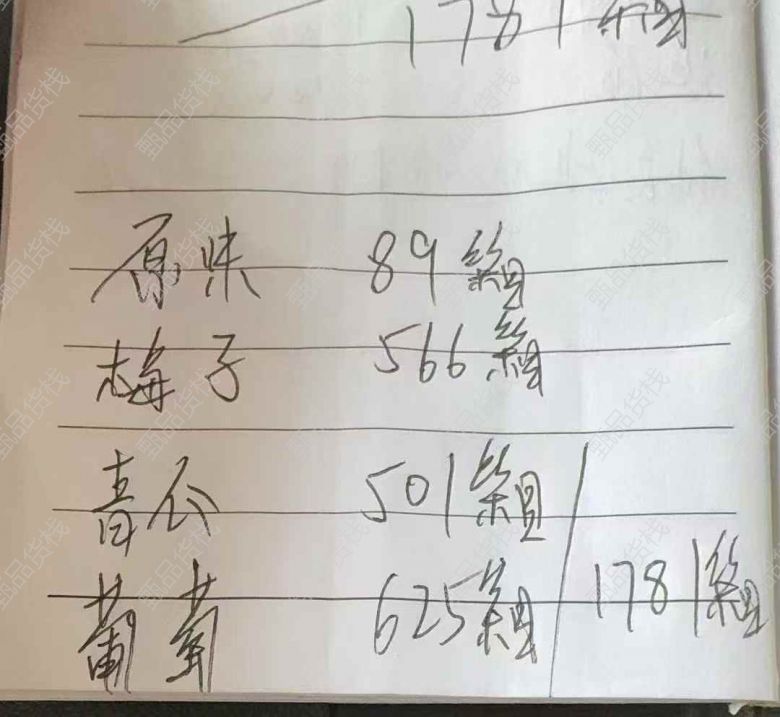 1781組
原味 89組
梅子 566組
青瓜 501組
葡萄 625組 1781組
甄品货栈